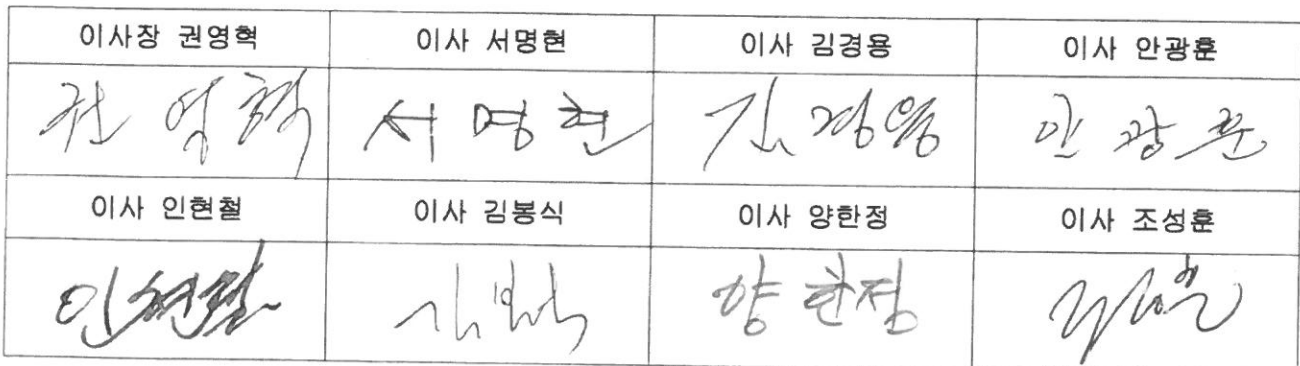 이사장 권영혁 이사 서명현 이사 김경용 이사 안광훈
권 영 혁 서 명 현 김 경 용 안 광 훈
이사 인현철 이사 김봉식 이사 양한정 이사 조성훈
인현철 김봉식 양 한정